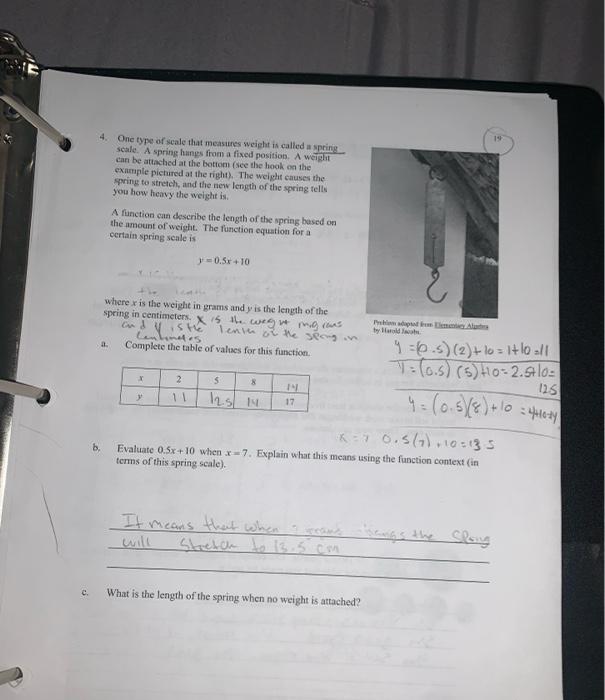 19
4. One type of scale that measures weight is called a spring
scale. A spring hangs from a fixed position. A weight
can be attached at the bottom (see the hook on the
example pictured at the right). The weight causes the
spring to stretch, and the new length of the spring tells
you how heavy the weight is.
A function can describe the length of the spring based on
the amount of weight. The function equation for a
certain spring scale is
y = 0.5x + 10
where x is the weight in grams and y is the length of the
spring in centimeters. X is the weight in grams
and y is the length of the spring in
Problem adapted from Elementary Algebra
by Harold Jacobs.
a. Complete the table of values for this function.
x 2 5 8 14
y 11 12.5 14 17
y = (0.5)(2)+10 = 1+10 = 11
y = (0.5)(5)+10 = 2.5+10=
12.5
y = (0.5)(8)+10 = 4+10=14
x = 7 0.5(7)+10=13.5
b. Evaluate 0.5x + 10 when x = 7. Explain what this means using the function context (in
terms of this spring scale).
It means that when 7 grams the Spring
will stretch to 13.5 cm
c. What is the length of the spring when no weight is attached?